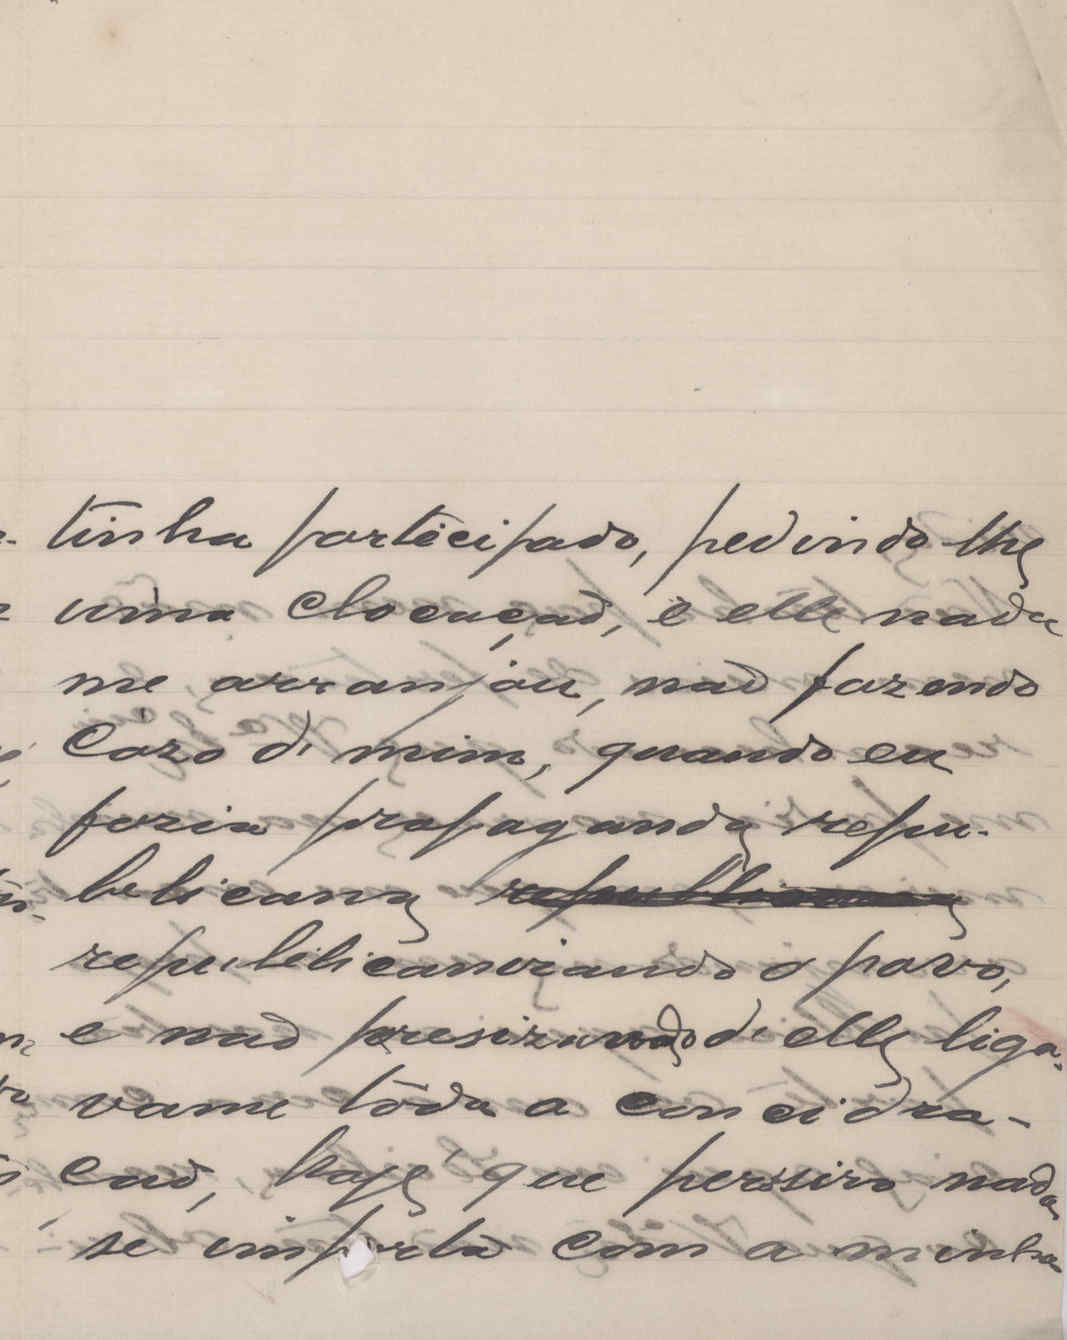 tinha partecipado, pedindo-lhe
uma clocaçaõ, e elle nada
me arranjou, naõ fazendo
cazo di mim, quando eu
fazia propaganda repu-
belicana
republicanizando o pavo,
e naõ presizando d'elle liga-
vame tôda a concidra-
çaõ, haje que persizo nada
se importa com a minha